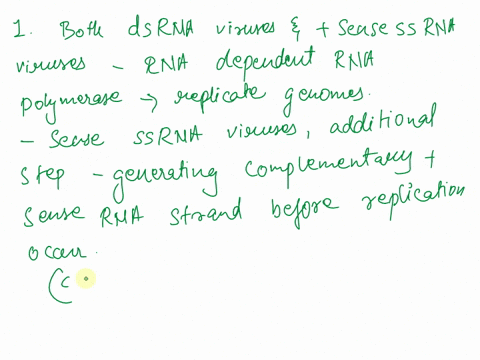 1. Both dsRNA viruses & + Sense ss RNA
viruses - RNA dependent RNA
polymerase → replicate genomes.
- Sense ssRNA viruses, additional
step - generating complementary +
sense RNA strand before replication
occur.
(c